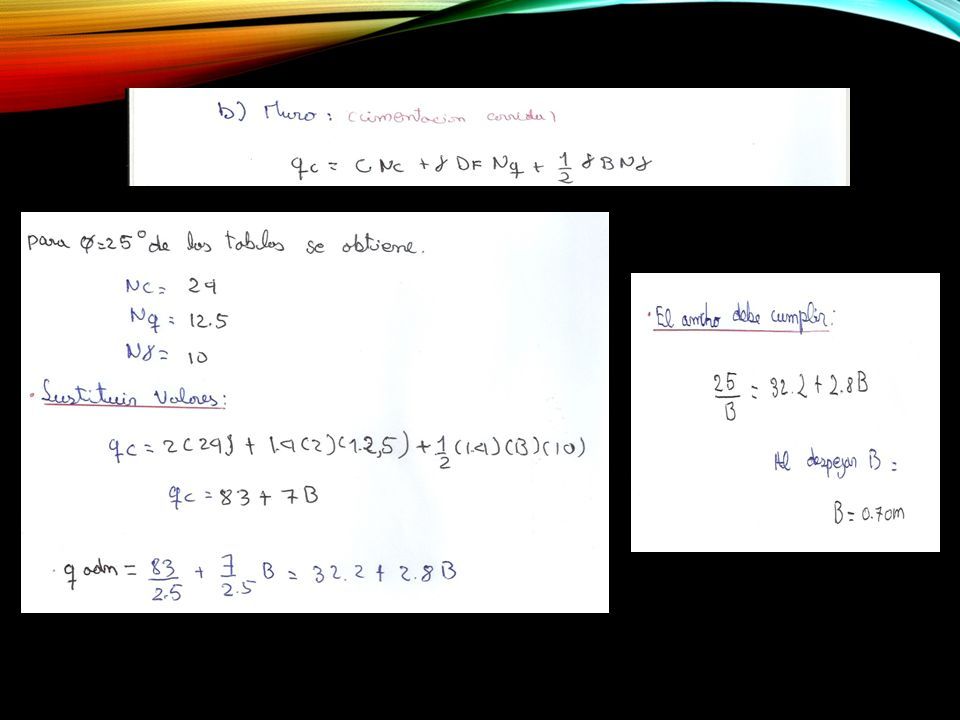 b) Muro: (cimentacion corrida)
qc = C Nc + γ DF Nq + 1/2 γ B Nγ
para φ=25° de las tablas se obtiene.
Nc= 24
Nq= 12.5
Nγ= 10
· Sustituir Valores:
qc = 2(24) + 1.4(2)(12,5) + 1/2 (1.4)(B)(10)
qc = 83 + 7B
· q adm = 83/2.5 + 7/2.5 B = 32.2 + 2.8B
· El ancho debe cumplir:
25/B = 32.2 + 2.8B
Al despejar B =
B = 0.70m